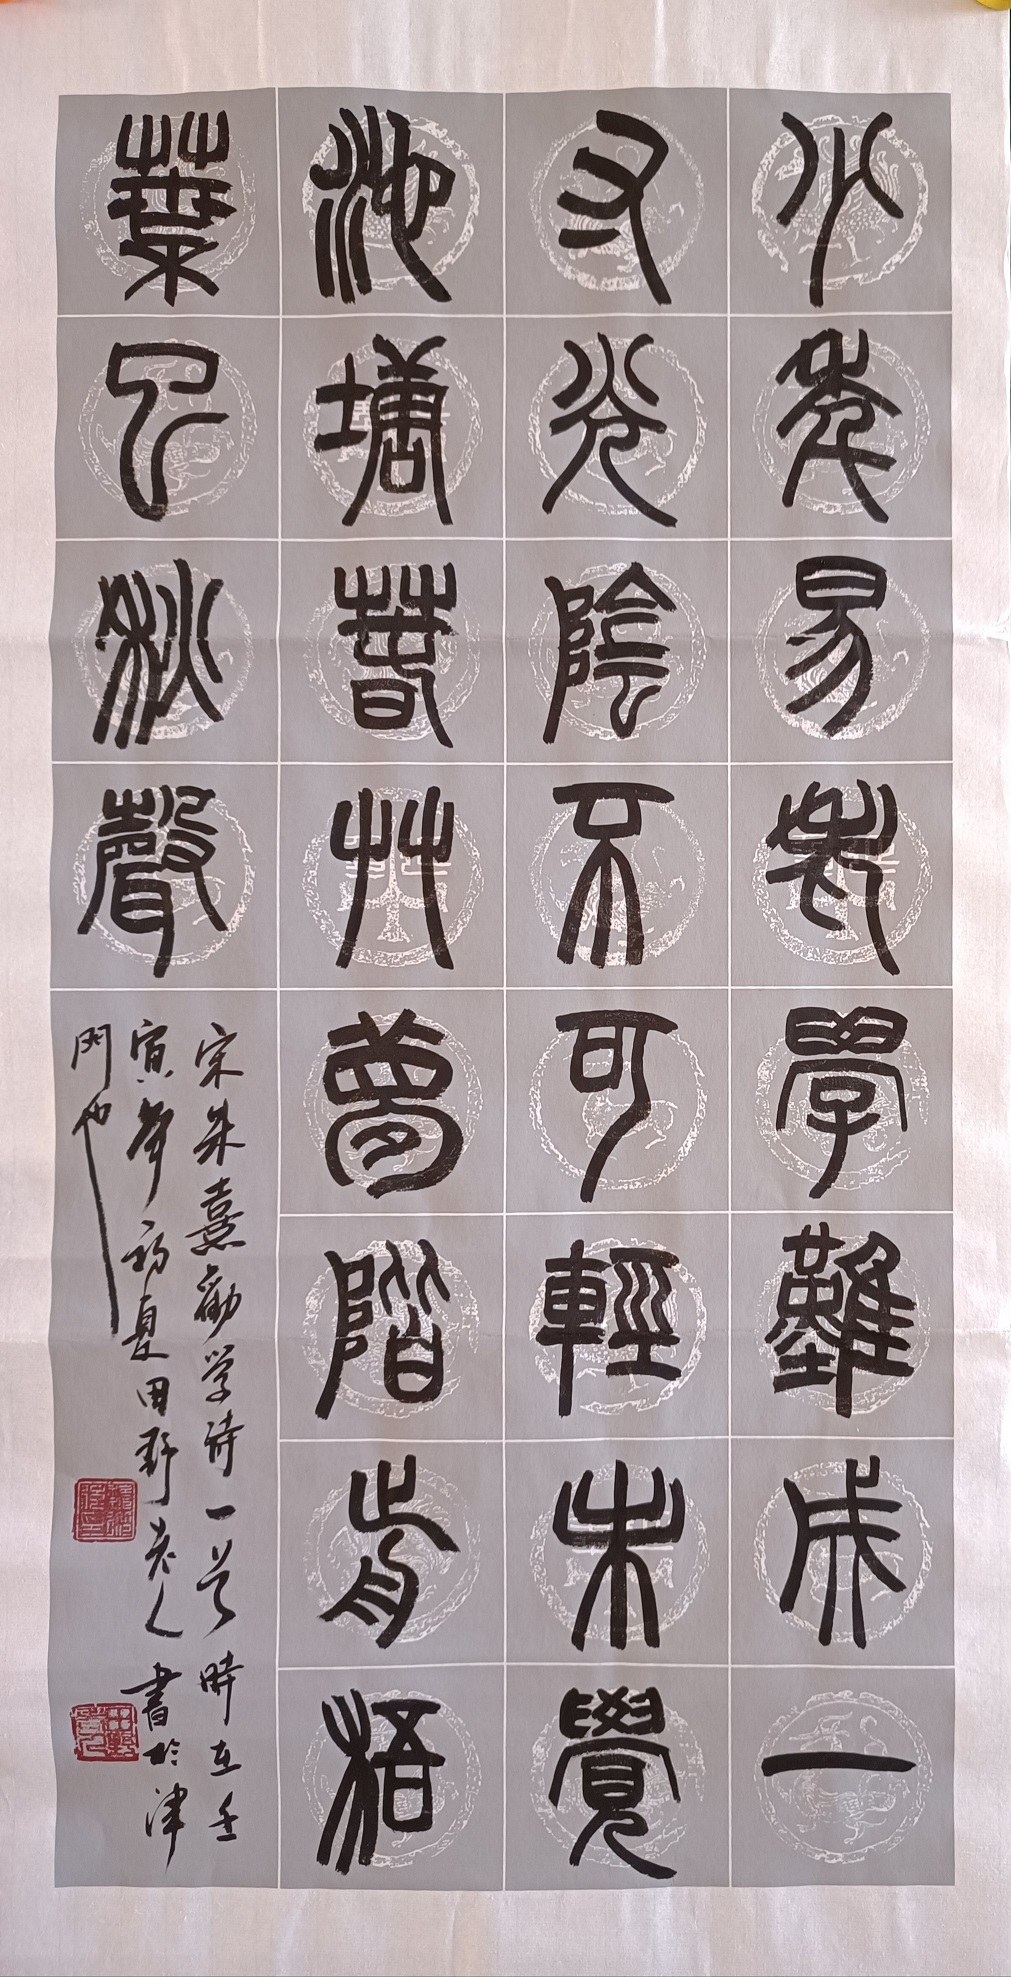 少年易老學難成一
寸光陰不可輕未覺
池塘春艸夢階前梧
葉已秋聲
宋朱熹勸学詩一首時在壬
寅年初夏田野老人書於津
門也